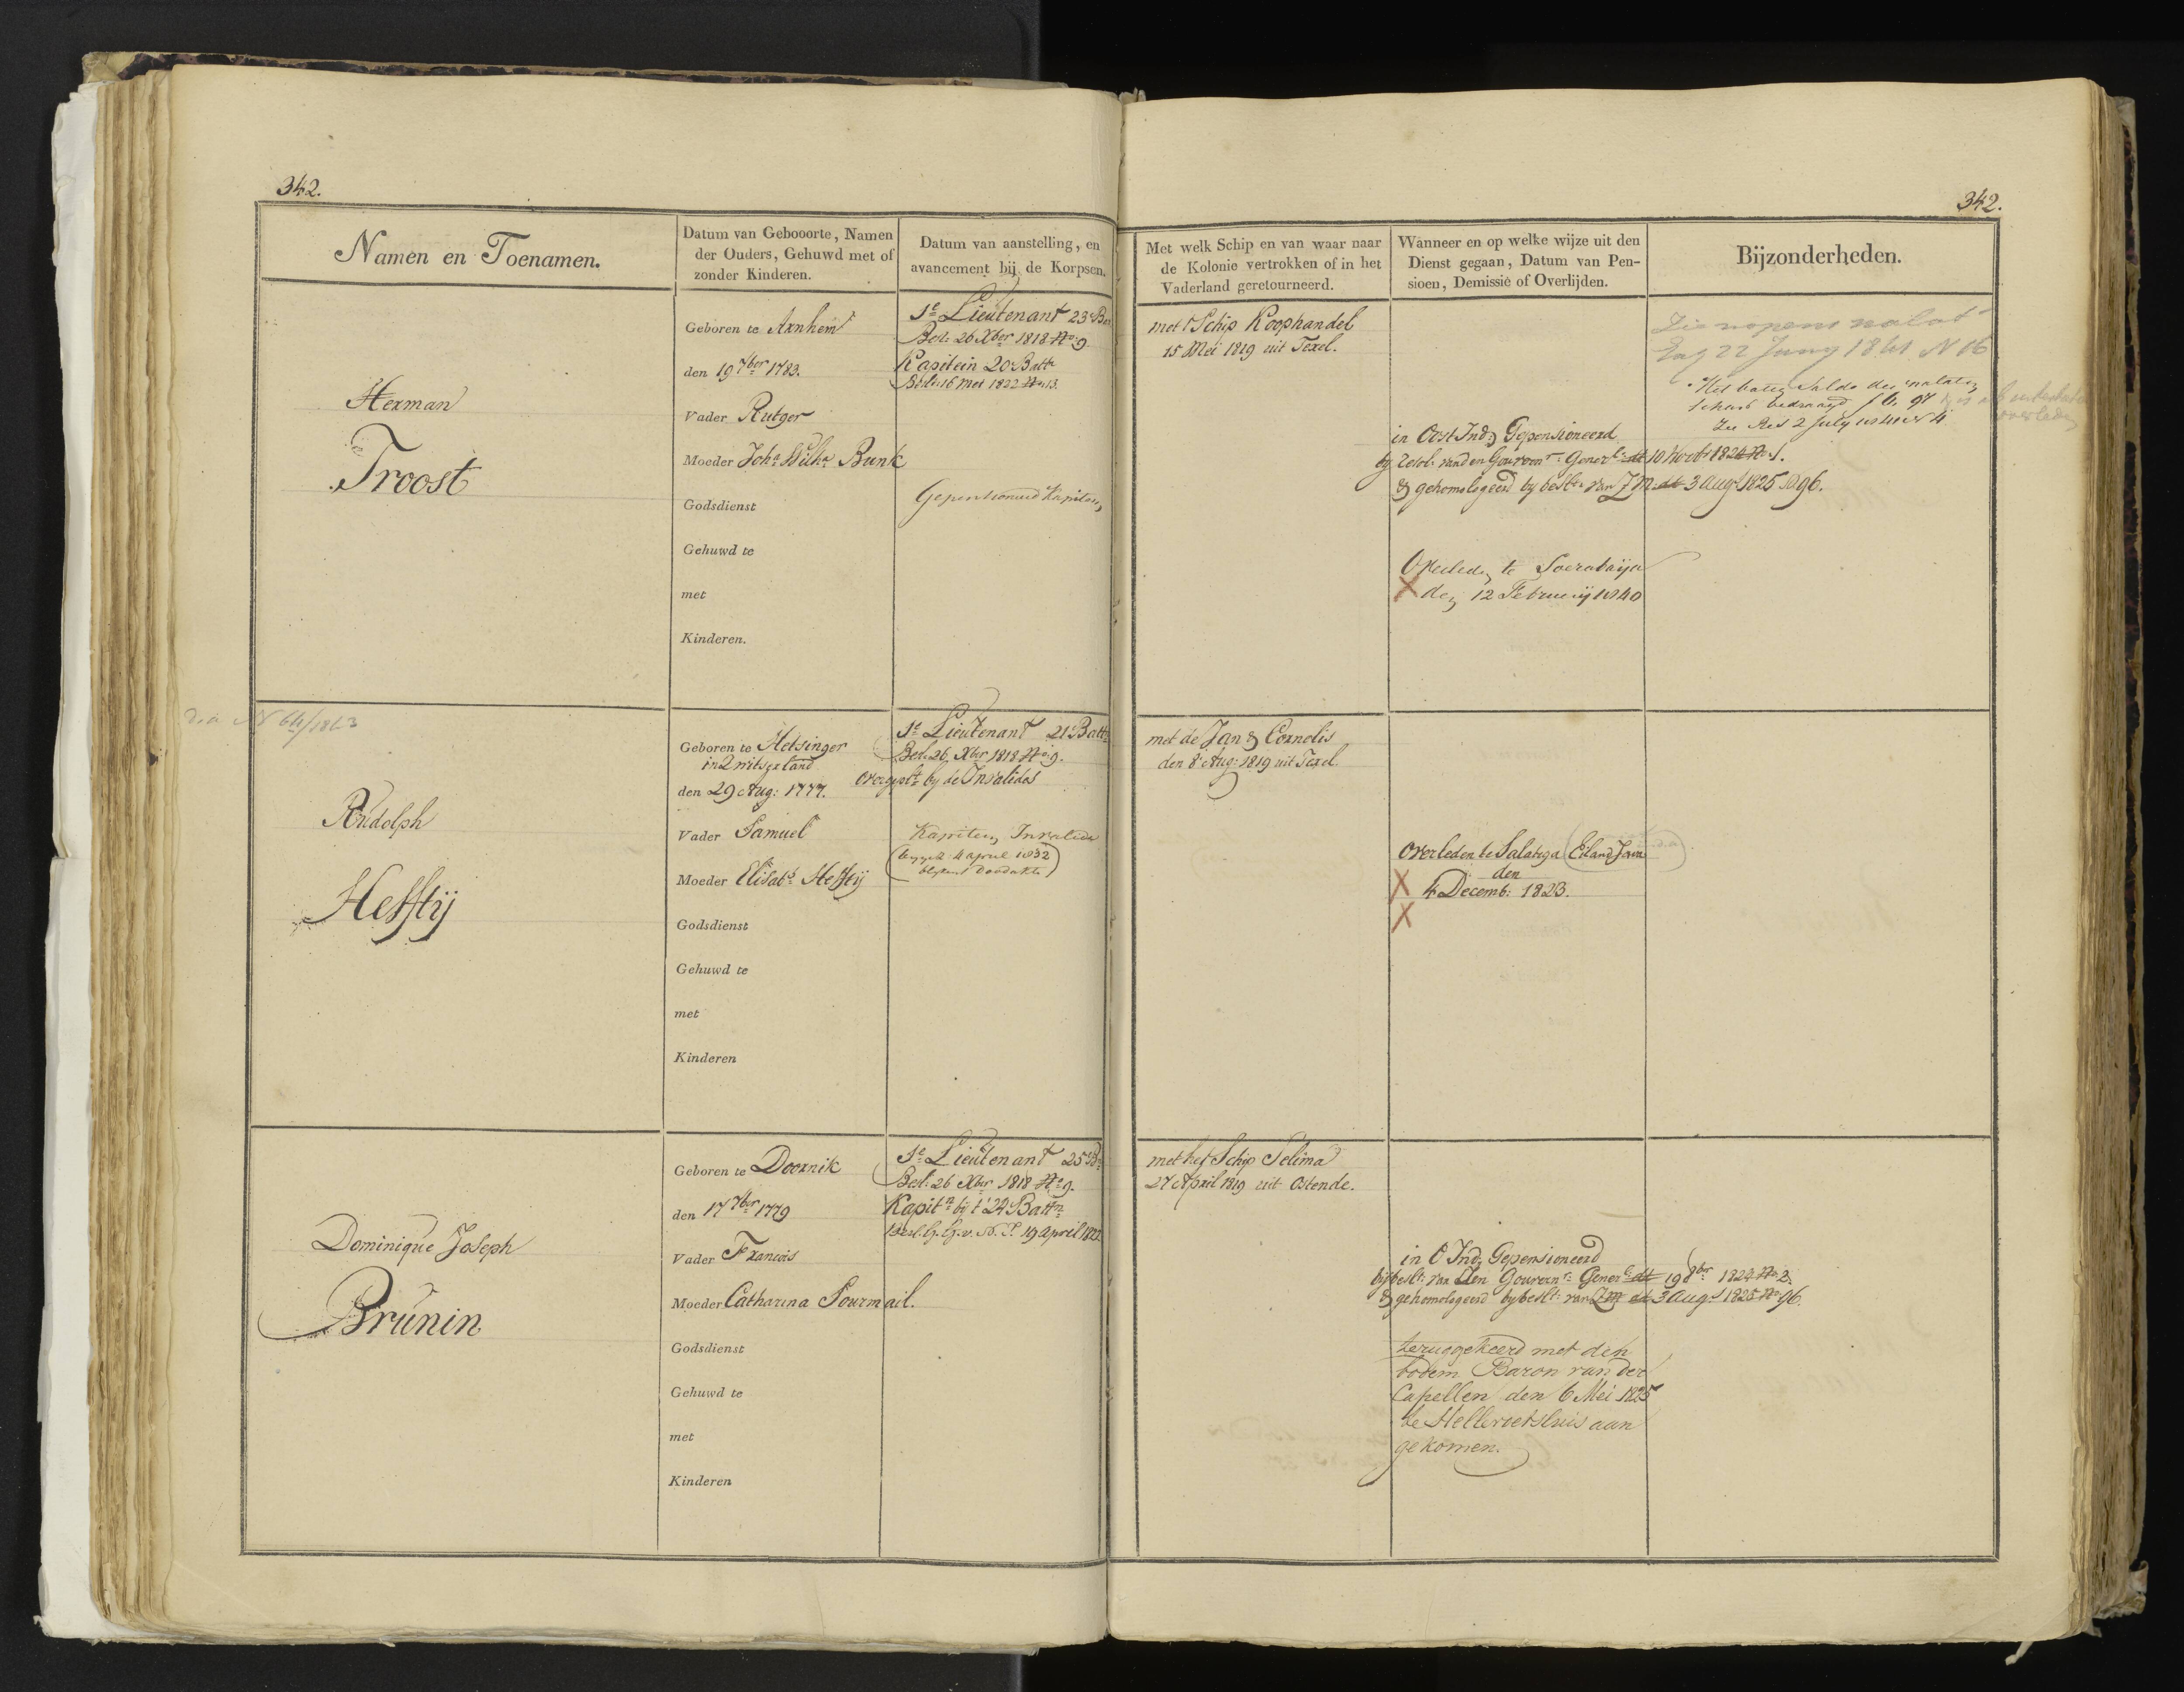 342.
342.
Namen en Toenamen.
Datum van Gebooorte, Namen
der Ouders, Gehuwd met of
zonder Kinderen.
Datum van aanstelling, en
avancement bij de Korpsen.
Met welk Schip en van waar naar
de Kolonie vertrokken of in het
Vaderland geretourneerd.
Wanneer en op welke wijze uit den
Dienst gegaan, Datum van Pen-
sioen, Demissie of Overlijden.
Bijzonderheden.
Herman
Troost
Geboren te Arnhem
den 19 7ber 1783.
Vader Rutger
Moeder Joha Wilha Bunk
Godsdienst
Gehuwd te
met
Kinderen.
1e Lieutenant 23 Bat
Besl: 26 Xber 1818 No 9
Kapitein 20 Battn
Beslt 16 Mei 1822 No 13.
Gepensioneerd Kapitein
met 't Schip Koophandel
15 Mei 1819 uit Texel.
in Oost Ind: Gepensioneerd
by Resol: van den Gouvernr: Generl: dt 10 Novbr 1824 No 1.
& gehomologeerd by beslt: van ZM: dt 3 Augt 1825 No 96.
Overleden te Soerabaija
X den 12 Februarij 1840
Zie nopens nalat
Lag 22 Juny 1841 N 16
Het batig Saldo der nalaten
schap bedraagd f 6, 97
Zie Res 2 July 1841 N 4
overleden
N 64/1863
Rudolph
Hefftij
Geboren te Hetsinger
in Zwitserland
den 29 Aug: 1777.
Vader Samuel
Moeder Elisabt Hefftij
Godsdienst
Gehuwd te
met
Kinderen
1e Lieutenant 21 Battn
Besl: 26 Xber 1818 No 9.
overgeplt by de Invalides
Kapitein Invalide
4 april 1832
met de Jan & Cornelis
den 8 Aug: 1819 uit Texel.
Overleden te Salatiga (Eiland Java)
den
X 4 Decemb: 1823.
X
Dominique Joseph
Brunin
Geboren te Doornik
den 17 7ber 1779
Vader Francois
Moeder Catharina Sourmail.
Godsdienst
Gehuwd te
met
Kinderen
1e Lieutenant 25 Bn
Besl: 26 Xber 1818 No 9.
Kapitn bij 't 24 Battn
Besl. G. G. v. N. I. 19 April 1822.
met het Schip Selima
27 April 1819 uit Ostende.
in O Ind: Gepensioneerd
bij beslt: van den Gouvernr: Generl dt 19 8br 1824 No 2.
& gehomologeerd by beslt: van ZM dt 3 Augt 1825 No 96.
teruggekeerd met den
bodem Baron van der
Capellen den 6 Mei 1825
te Hellevoetsluis aan
gekomen.